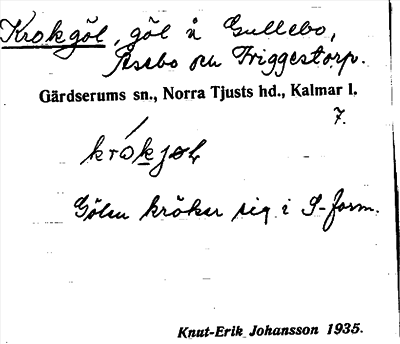 Krokgöl, göl å Gullebo,
Åsebo och Friggestorp.
Gärdserums sn., Norra Tjusts hd., Kalmar l.
7.
Gölen kröker sig i S-form.
Knut-Erik Johansson 1935.